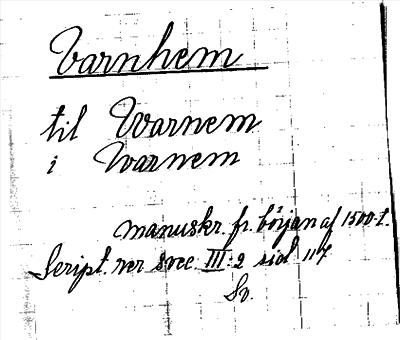 Varnhem
til Warnem
i Warnem
manuskr. fr. början af 1500-t.
Script. rer svec. III: 2 sid 117
Sv.